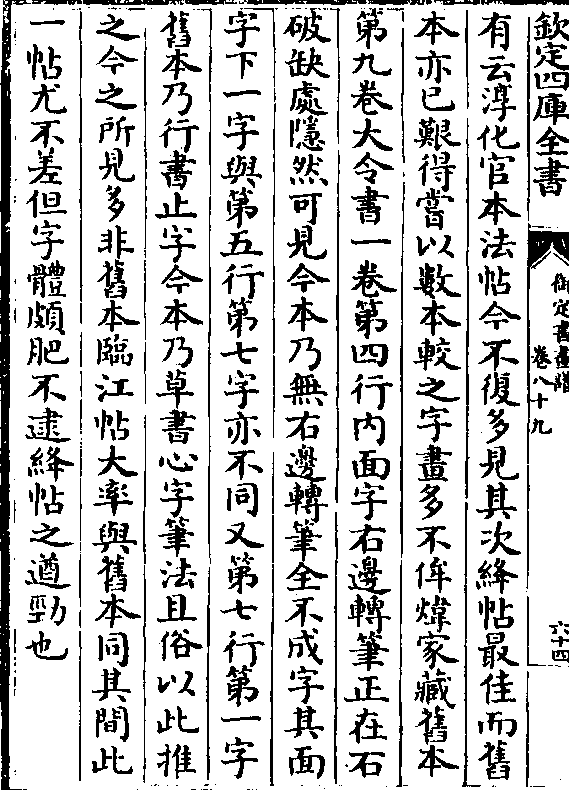 欽定四庫全書
御定書畫譜
卷八十九
六十四
有云淳化官本法帖今不復多見其次絳帖最佳而舊
本亦已艱得嘗以數本較之字畫多不侔煒家藏舊本
第九卷大令書一卷第四行内面字右邊轉筆正在石
破缺處隱然可見今本乃無右邊轉筆全不成字其面
字下一字與第五行第七字亦不同又第七行第一字
舊本乃行書止字今本乃草書心字筆法且俗以此推
之今之所見多非舊本臨江帖大率與舊本同其間此
一帖尤不差但字體頗肥不逮絳帖之遒勁也